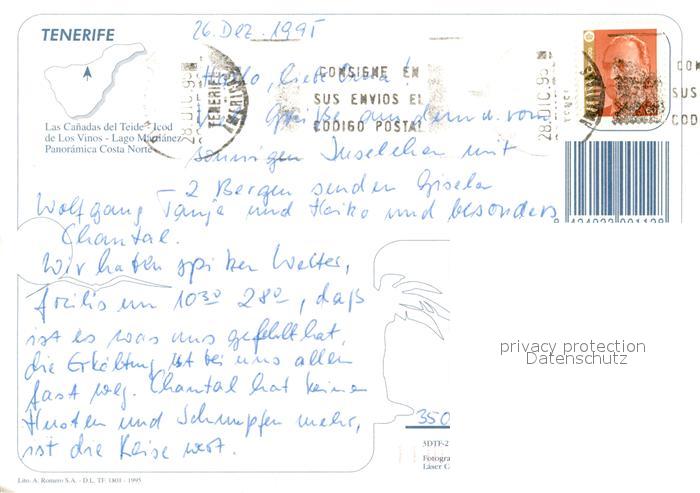 TENERIFE
26. Dez. 1995
Hallo, liebe
CONSIGNE EN
SUS ENVIOS EL
CODIGO POSTAL
28 DIC 95
TENERIFE
Las Cañadas del Teide - Icod
de Los Vinos - Lago Martiánez
Panorámica Costa Norte
Grüße aus dem
sonnigen Inselchen mit
2 Bergen senden Gisela
Wolfgang Tanja und Heiko und besonders
Chantal.
Wir haben spitzen Wetter,
um 10³⁰ 28°, daß
ist es was uns gefehlt hat,
die Erkältung ist bei uns allen
fast weg. Chantal hat keinen
Husten und Schnupfen mehr,
ist die Reise wert.
8 424023 001128
privacy protection
Datenschutz
350
3DTF-2
Fotogra
Láser C
Lito. A. Romero S.A. - D.L. TF. 1801 - 1995